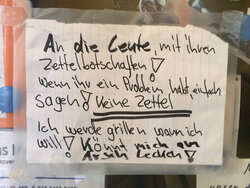 An die Leute, mit ihren
Zettelbotschaften!
Wenn ihr ein Problem habt, einfach
sagen! Keine Zettel
Ich werde grillen wann ich
will! Könnt mich am
Arsch lecken!